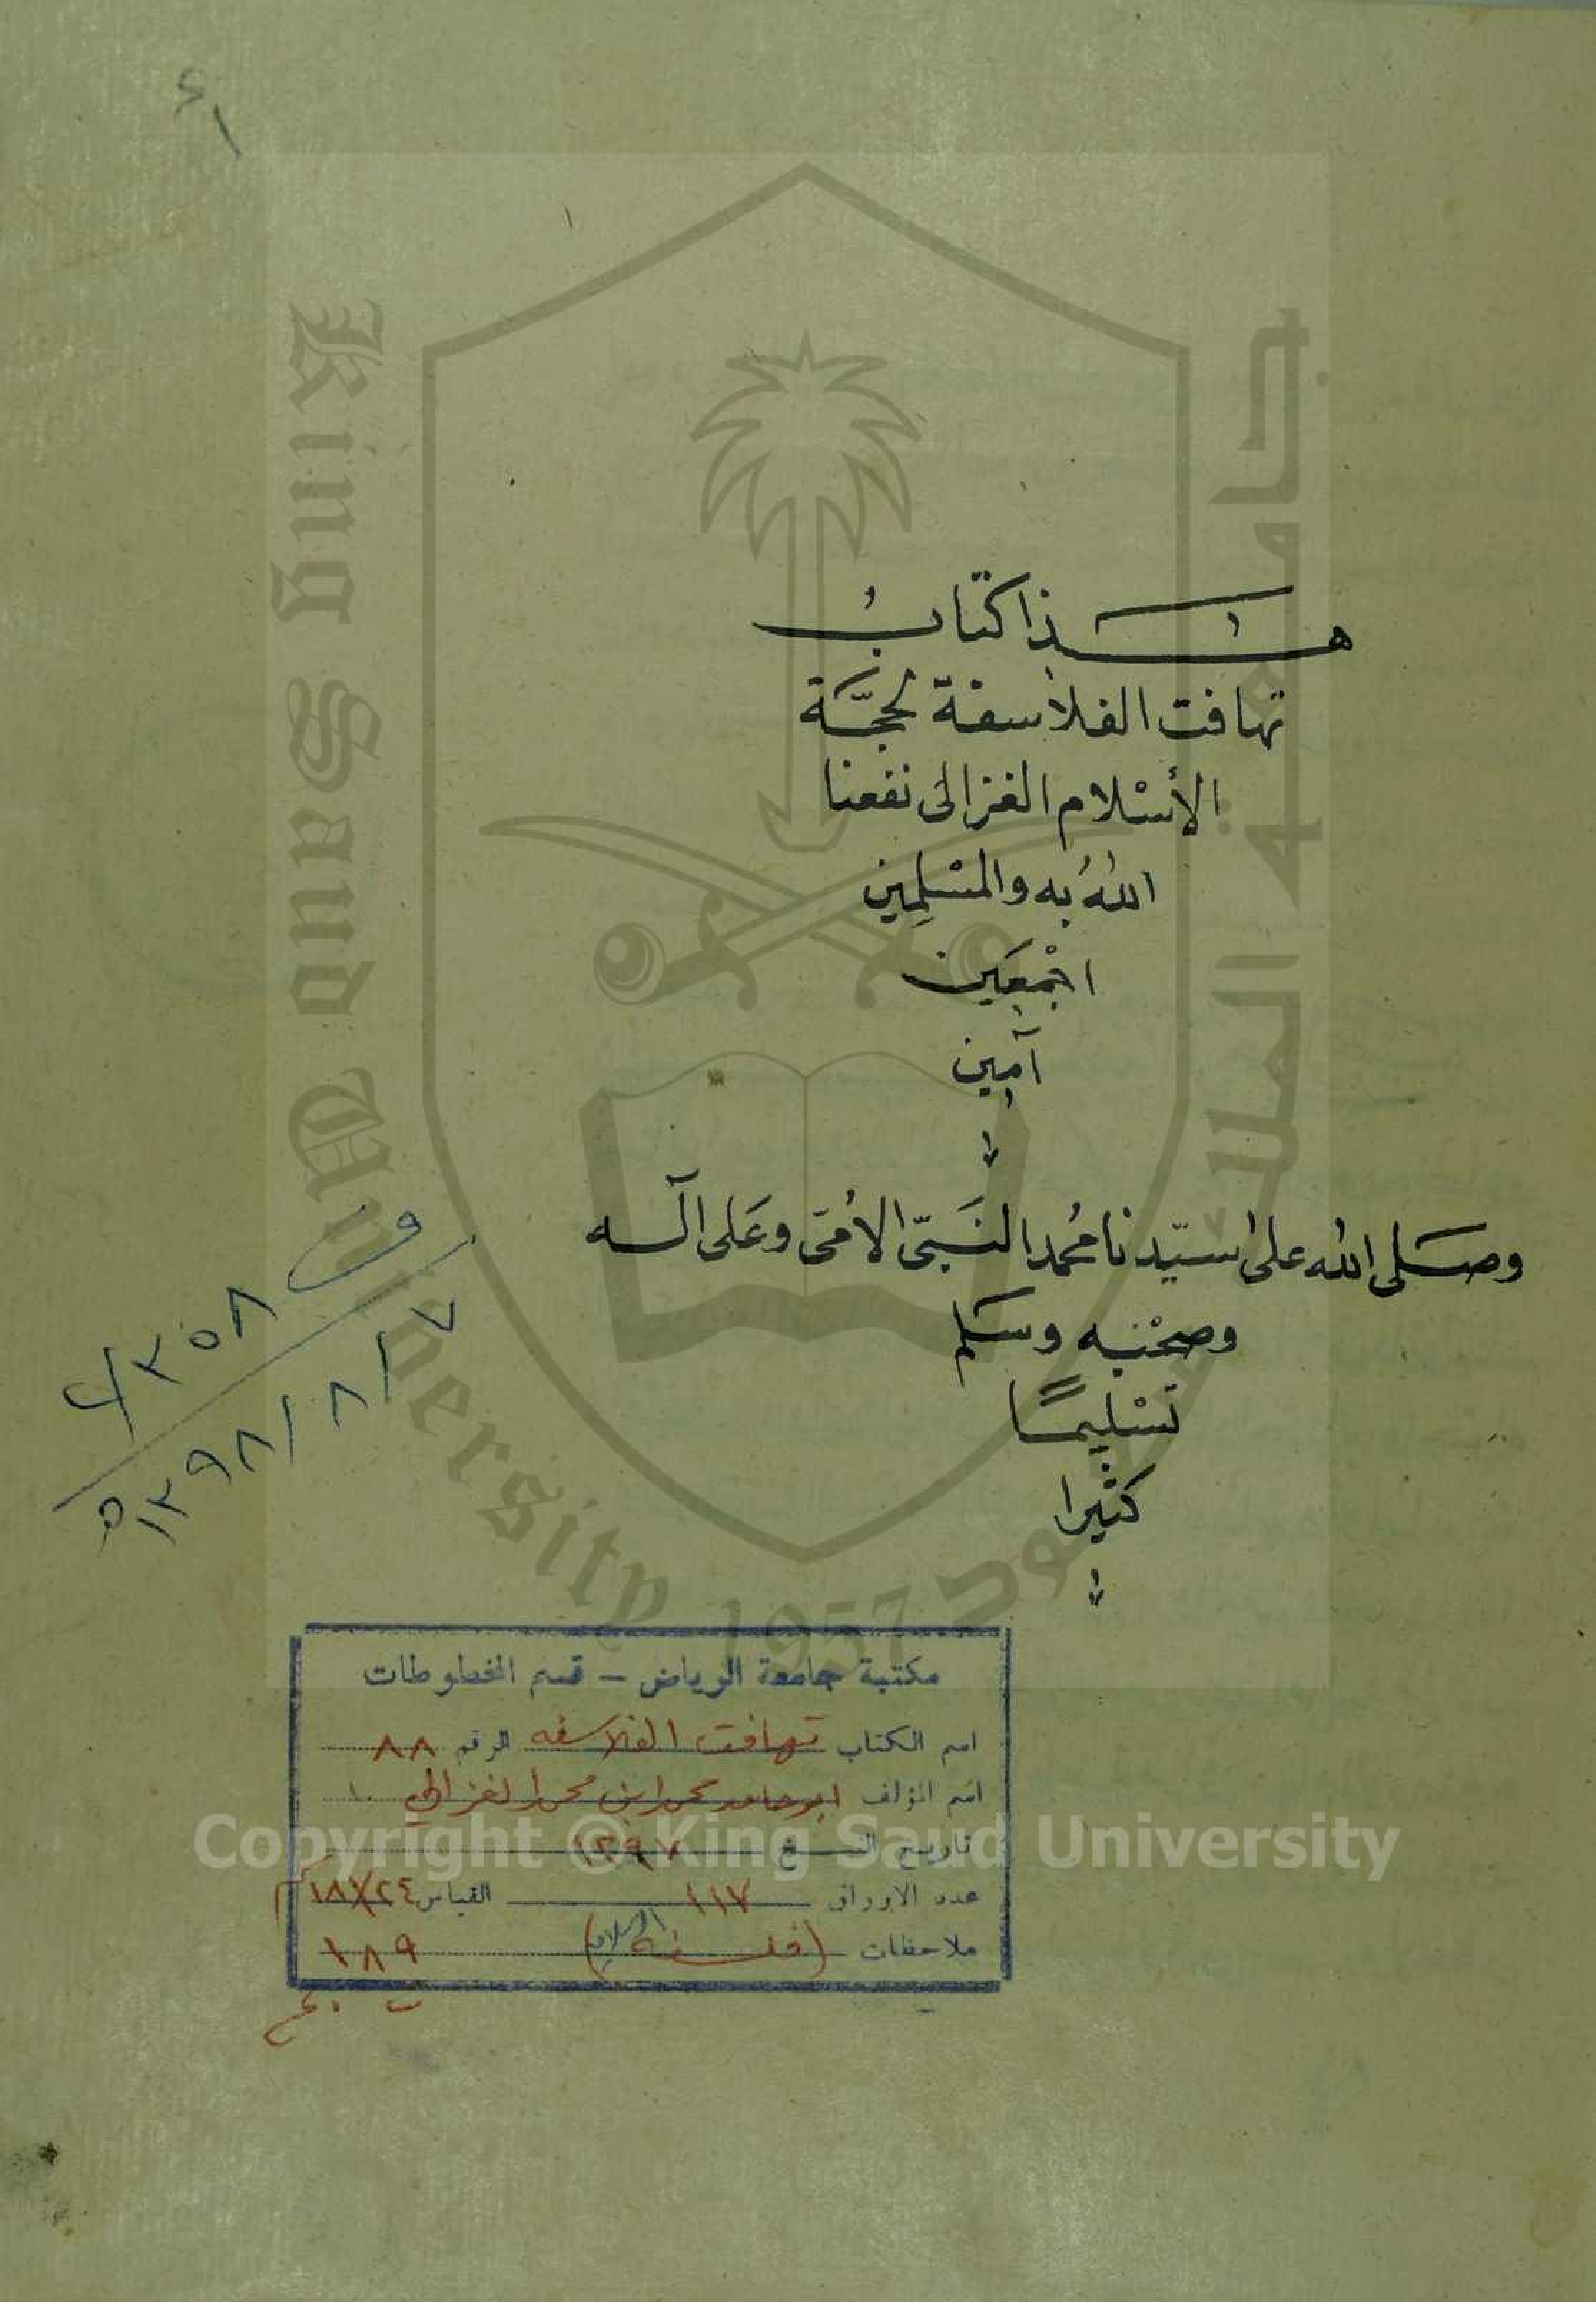 هـذا كتابُ
تهافت الفلاسفة لحجّة
الأسْلام الغزالى نفعنا
اللهُ به والمسْلِمين
اجْمعَين
آمين
وصَلى الله على سيّدنا محُمد النَبيّ الاُمّى وعَلى آله
وصحْبه وسَلم
تسْليمًا
كثيرا
ف
٢٣٥٨
١٣٩٨/٨/٧ ه
مكتبة جامعة الرياض – قسم المخطوطات
اسم الكتاب تهافت الفلاسفه الرقم ٨٨
اسم المؤلف ابو حامد محمد ابن محمد الغزالي
تاريخ النسخ ١٢٩٧
عدد الاوراق ١١٧ القياس ٢٤×١٨
ملاحظات (فلسفة اسلاميه) ١٨٩
King Saud University 1957
جامعة الملك سعود
Copyright © King Saud University